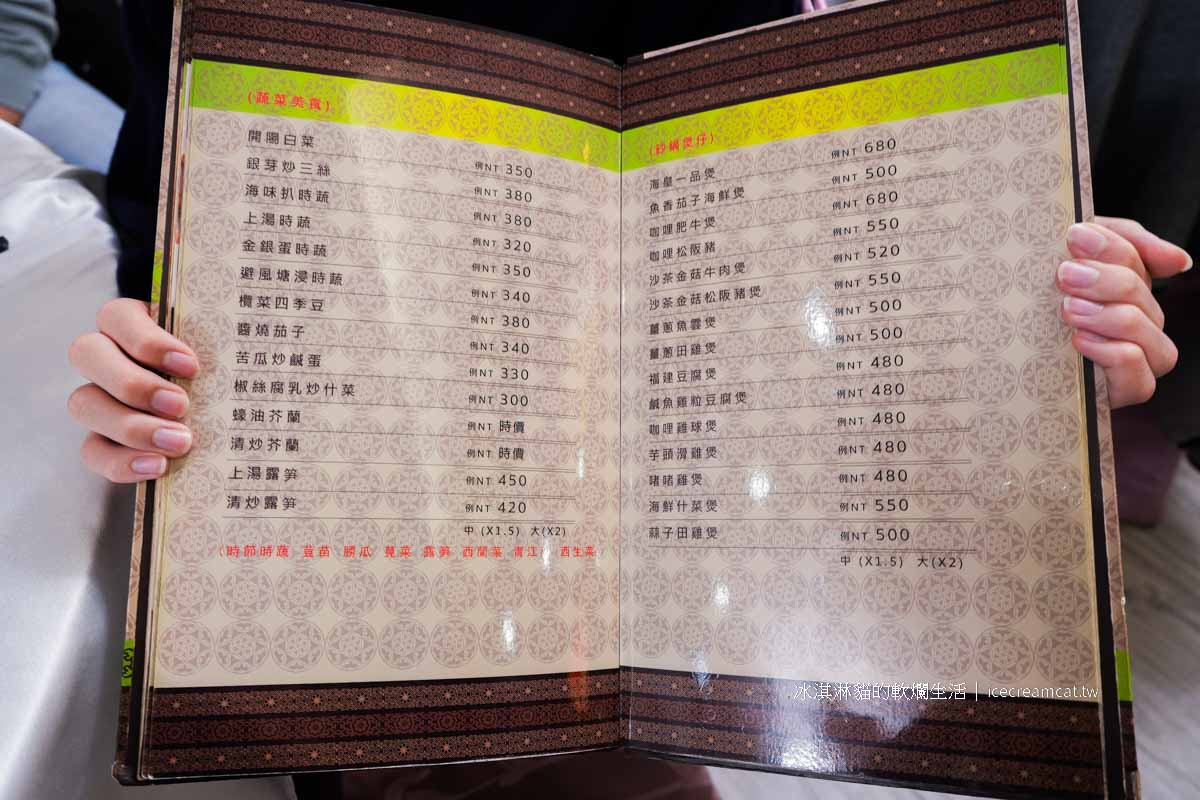 (蔬菜美食)
開陽白菜 例NT 350
銀芽炒三絲 例NT 380
海味扒時蔬 例NT 380
上湯時蔬 例NT 320
金銀蛋時蔬 例NT 350
避風塘浸時蔬 例NT 340
欖菜四季豆 例NT 380
醬燒茄子 例NT 340
苦瓜炒鹹蛋 例NT 330
椒絲腐乳炒什菜 例NT 300
蠔油芥蘭 例NT 時價
清炒芥蘭 例NT 時價
上湯露笋 例NT 450
清炒露笋 例NT 420
中 (X1.5) 大(X2)
(時節時蔬 荳苗 勝瓜 莧菜 露笋 西蘭菜 青江 西生菜)
(砂鍋煲仔)
海皇一品煲 例NT 680
魚香茄子海鮮煲 例NT 500
咖哩肥牛煲 例NT 680
咖哩松阪豬 例NT 550
沙茶金菇牛肉煲 例NT 520
沙茶金菇松阪豬煲 例NT 550
薑蔥魚雲煲 例NT 500
薑蔥田雞煲 例NT 500
福建豆腐煲 例NT 480
鹹魚雞粒豆腐煲 例NT 480
咖哩雞球煲 例NT 480
芋頭滑雞煲 例NT 480
啫啫雞煲 例NT 480
海鮮什菜煲 例NT 550
蒜子田雞煲 例NT 500
中 (X1.5) 大(X2)
冰淇淋貓的軟爛生活｜icecreamcat.tw